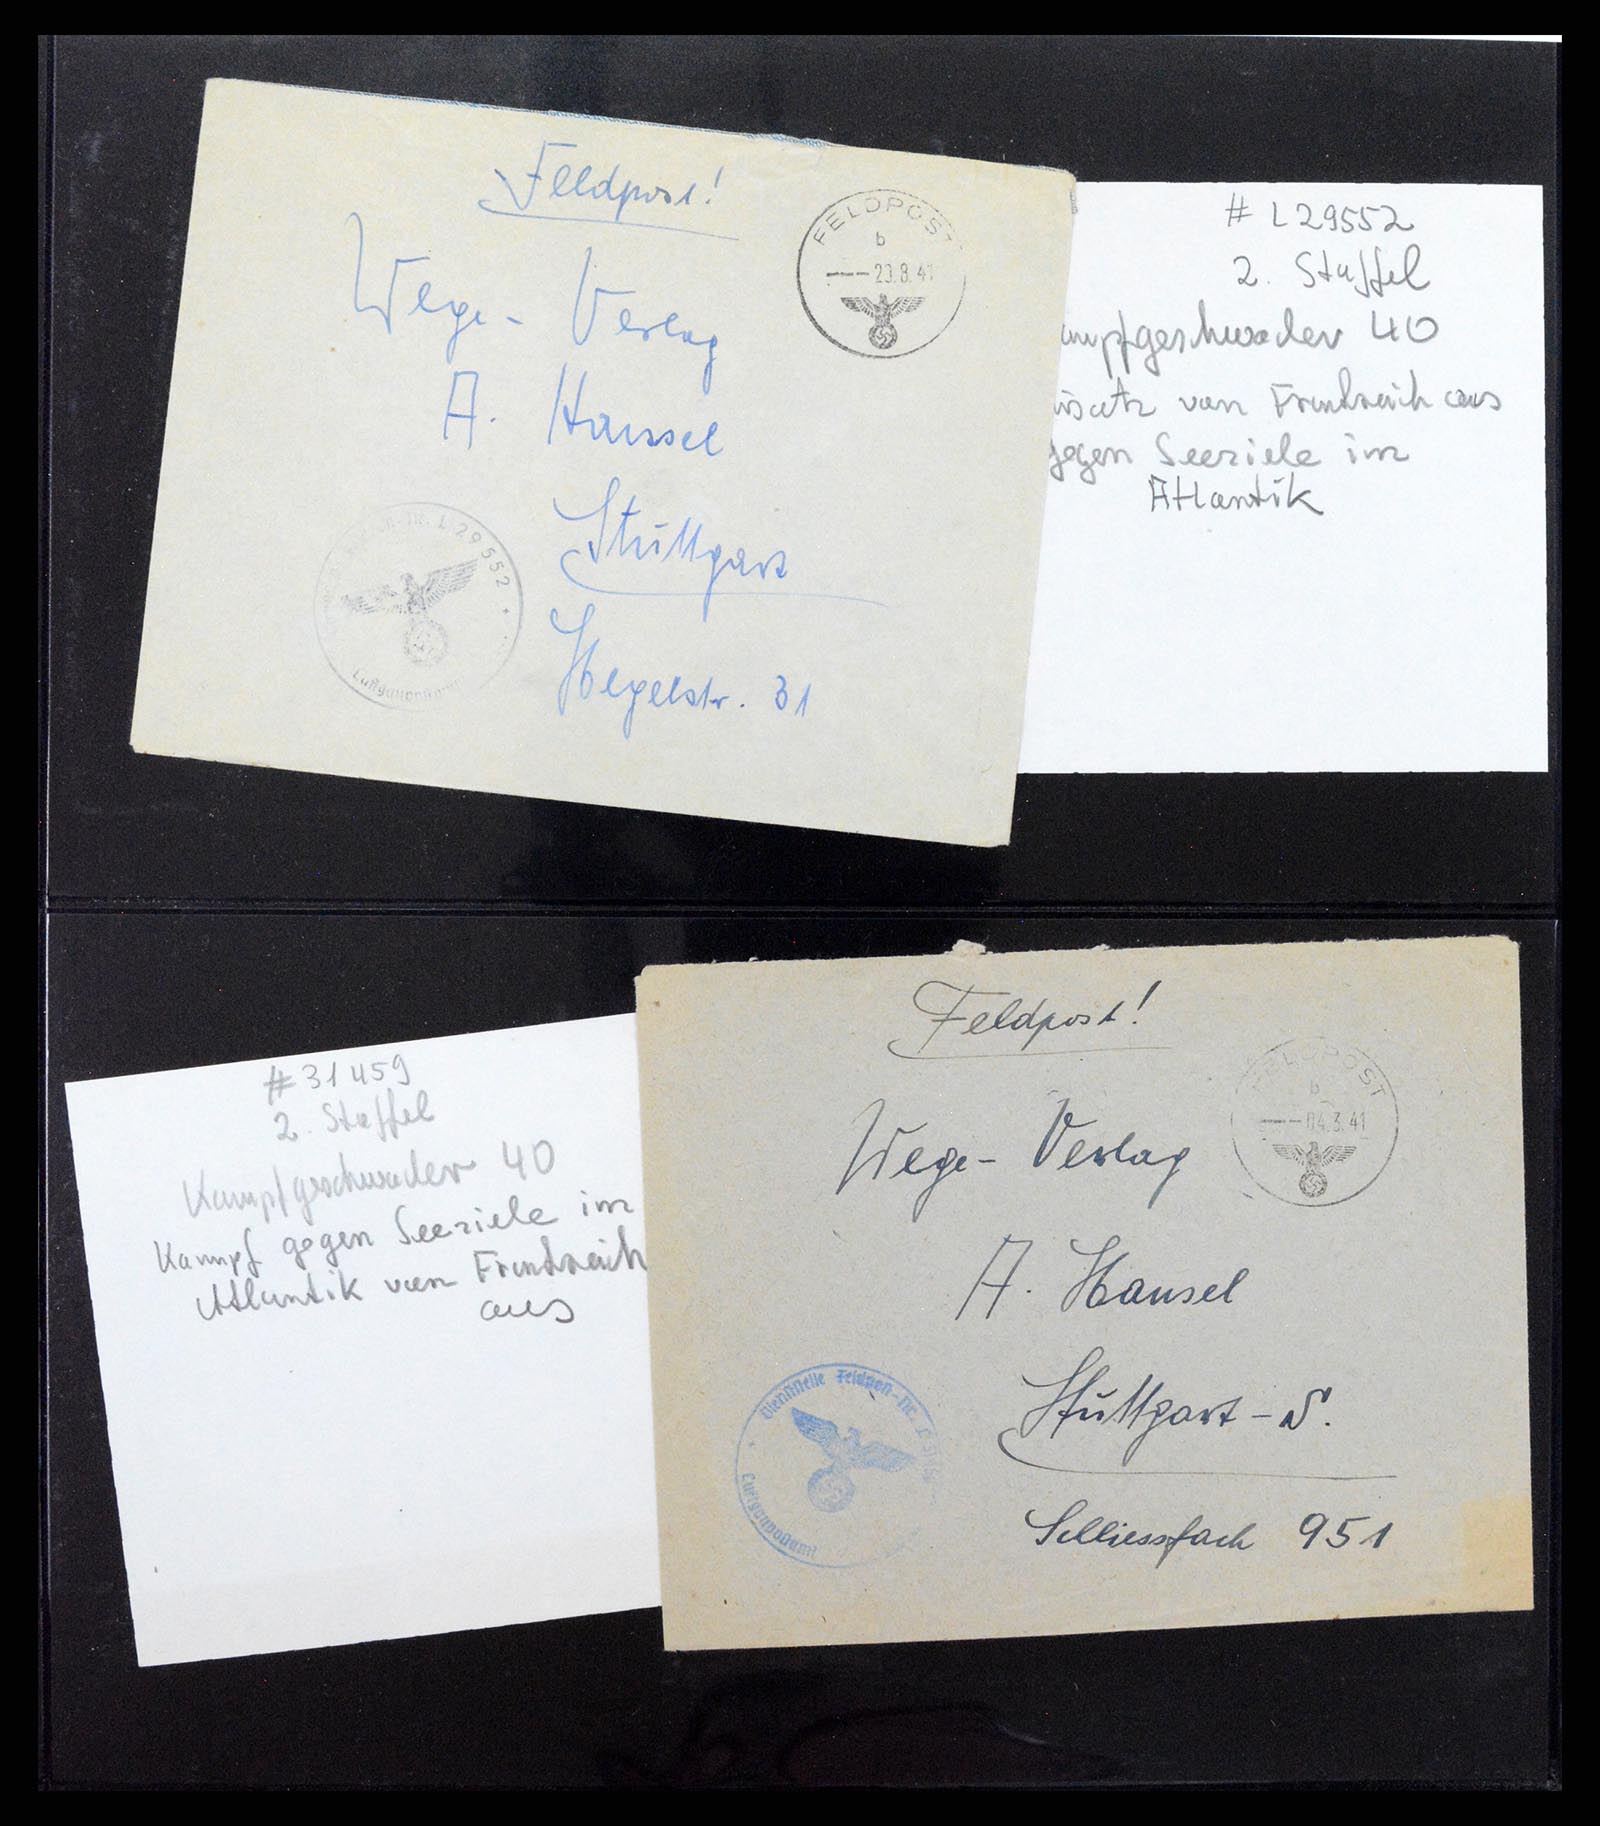 Feldpost!
FELDPOST
b
23.8.41
Wege- Verlag
A. Hansel
Stuttgart
Hegelstr. 31
L 29552
Luftgaupostamt
# L29552
2. Staffel
ampfgeschwader 40
nsatz von Frankreich aus
gegen Seeziele im
Atlantik
Feldpost!
FELDPOST
b
04.3.41
Wege- Verlag
A. Hansel
Stuttgart-S.
Schliessfach 951
Dienststelle Feldpost-Nr. L
Luftgaupostamt
#31459
2. Staffel
Kampfgeschwader 40
Kampf gegen Seeziele im
Atlantik von Frankreich
aus